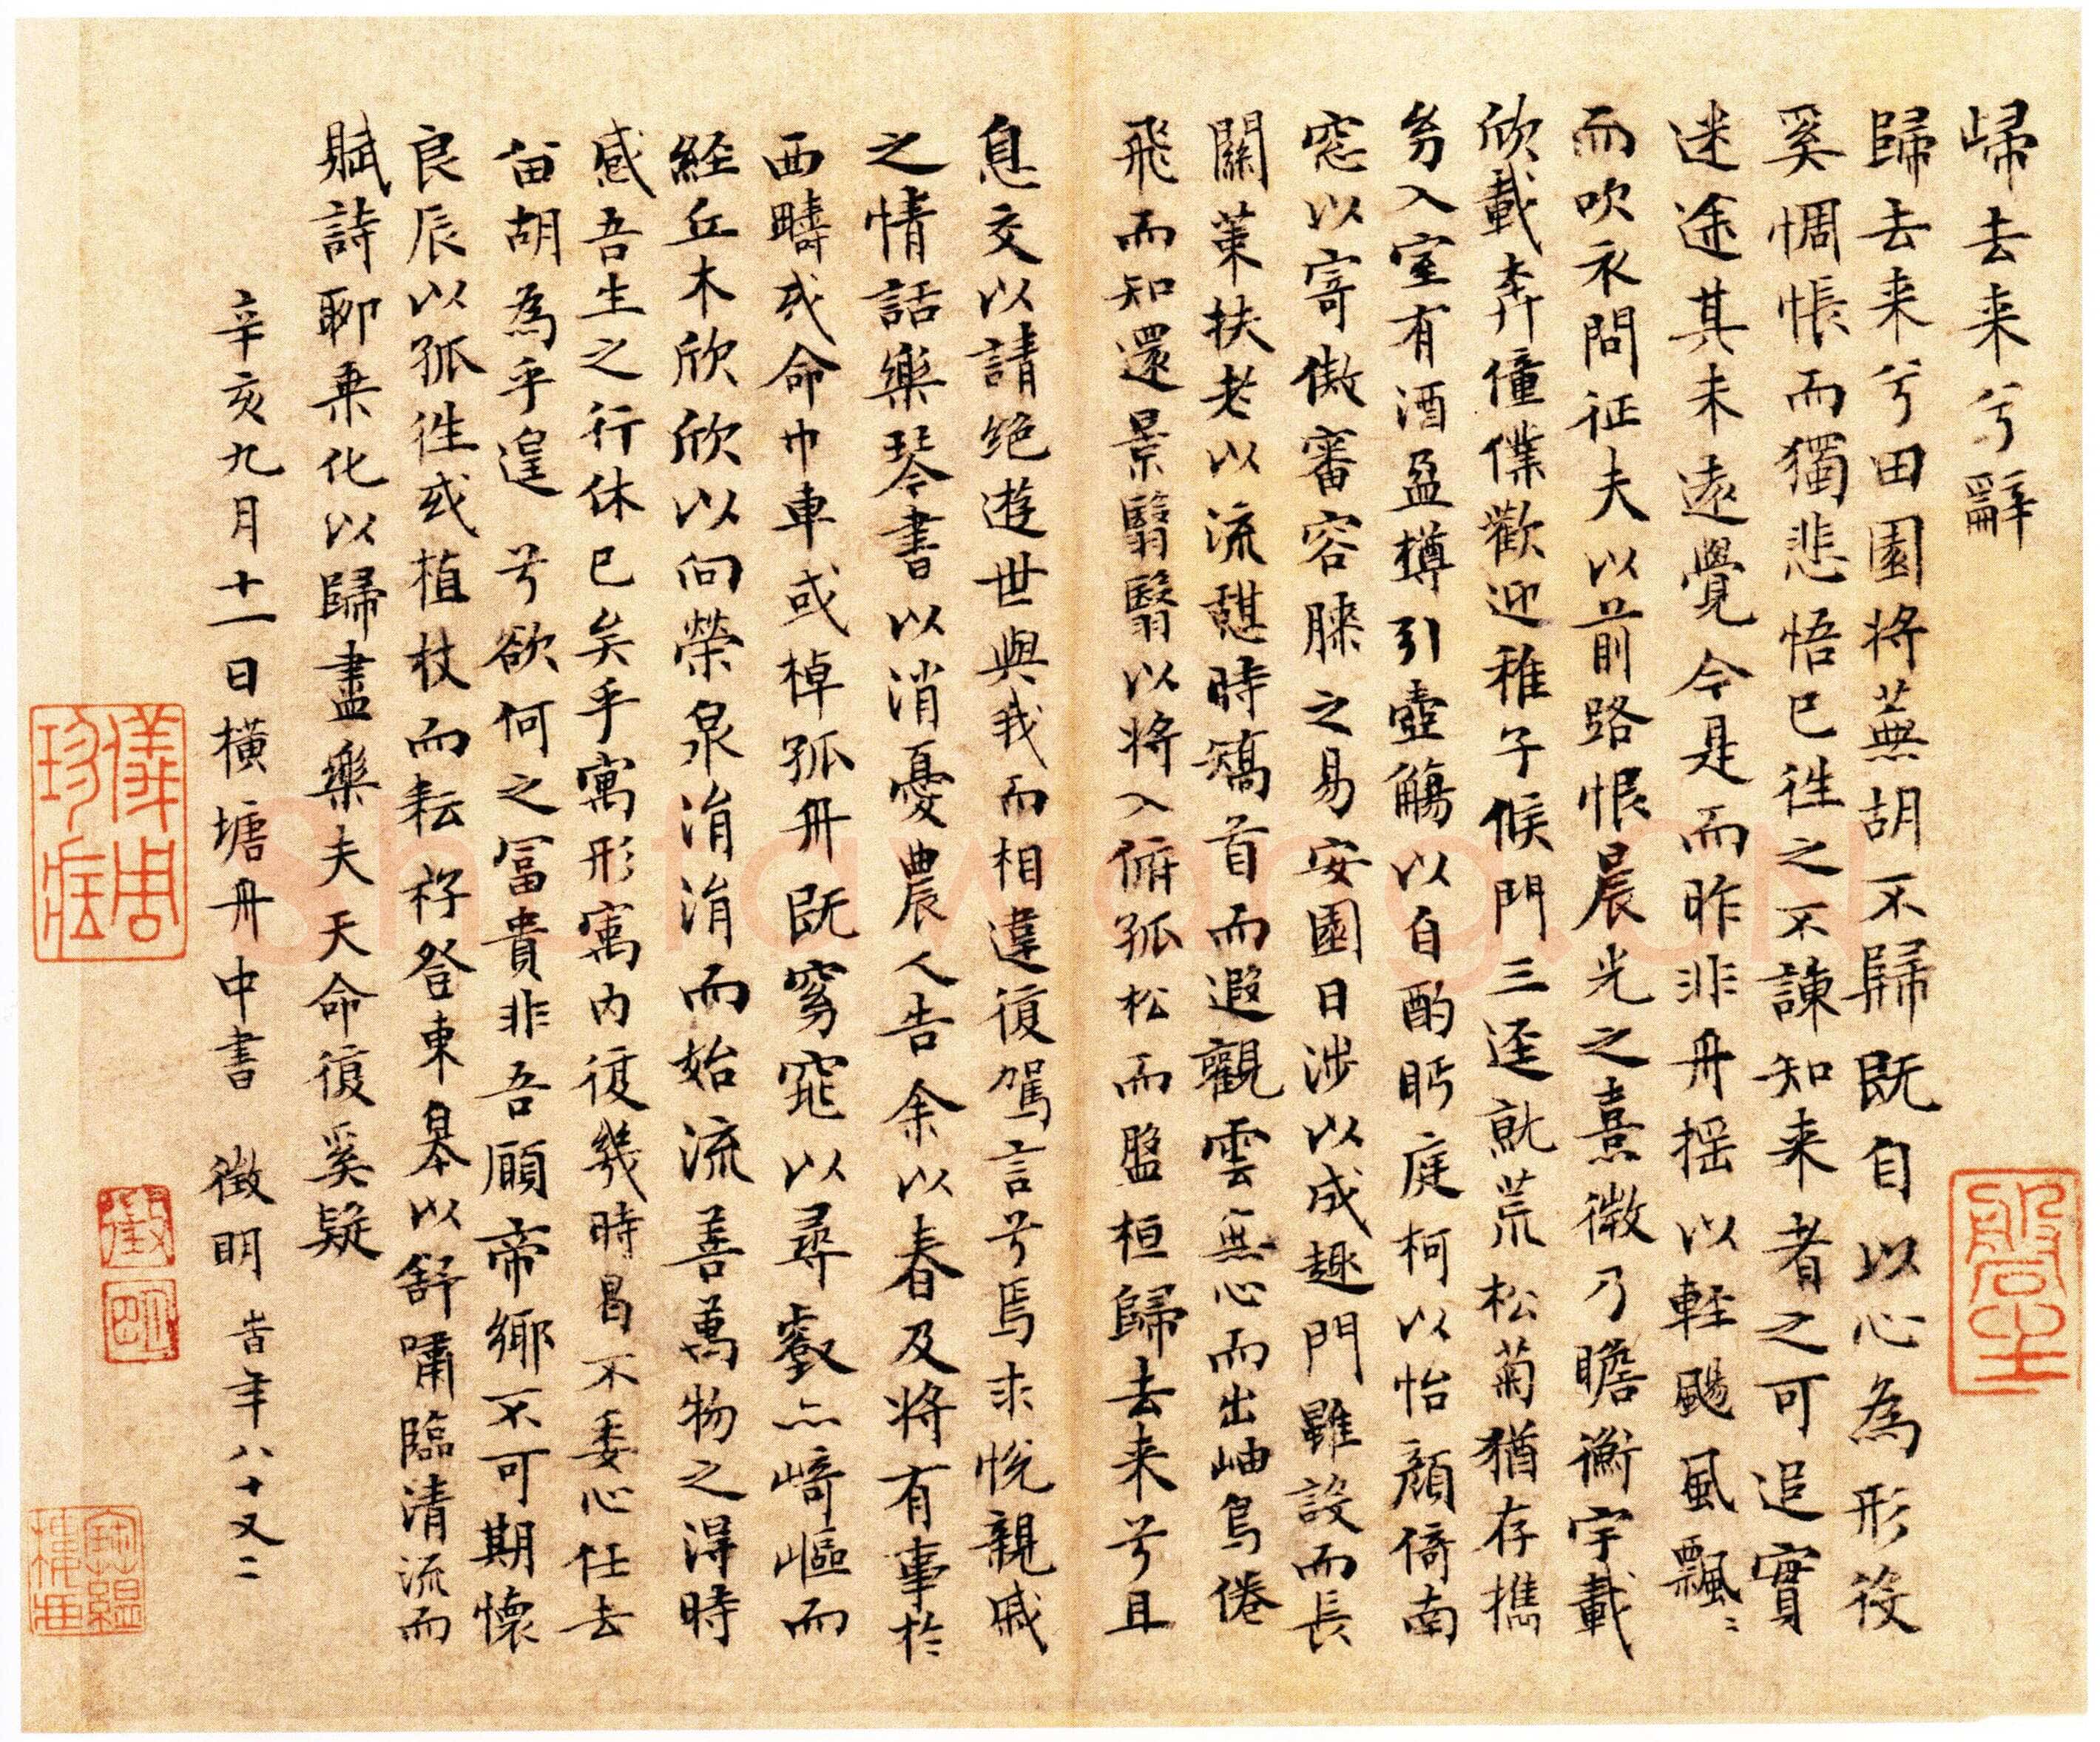 歸去来兮辭
歸去来兮田園将蕪胡不歸既自以心為形役
奚惆悵而獨悲悟已往之不諫知来者之可追實
迷途其未遠覺今是而昨非舟揺以輕颺風飄〻
而吹衣問征夫以前路恨晨光之熹微乃瞻衡宇載
欣載奔僮僕歡迎稚子候門三逕就荒松菊猶存攜
㓜入室有酒盈樽引壺觴以自酌眄庭柯以怡顔倚南
窓以寄傲審容膝之易安園日涉以成趣門雖設而長
關策扶老以流憩時矯首而遐觀雲無心而出岫鳥倦
飛而知還景翳翳以将入俯孤松而盤桓歸去来兮且
息交以請絶遊世與我而相違復駕言兮焉求悅親戚
之情話樂琴書以消憂農人告余以春及将有事於
西疇或命巾車或棹孤舟既窈窕以尋壑亦崎嶇而
経丘木欣欣以向榮泉涓涓而始流善萬物之得時
感吾生之行休已矣乎寓形寓内復幾時曷不委心任去
留胡為乎遑兮欲何之冨貴非吾願帝鄉不可期懷
良辰以孤往或植杖而耘耔登東皋以舒嘯臨清流而
賦詩聊乗化以歸盡樂夫天命復奚疑
辛亥九月十一日横塘舟中書 徴明 峕年八十又二
儀周珍藏
徵明